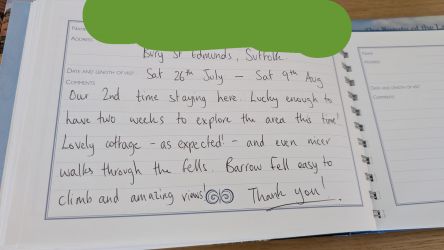 NAME
ADDRESS
Bury St Edmunds, Suffolk
DATE AND LENGTH OF VISIT
Sat 26th July - Sat 9th Aug
COMMENTS
Our 2nd time staying here. Lucky enough to
have two weeks to explore the area this time!
Lovely cottage - as expected! - and even nicer
walks through the fells. Barrow Fell easy to
climb and amazing views!
Thank you!
Name
Address
DATE AND LENGTH OF VISIT
COMMENTS